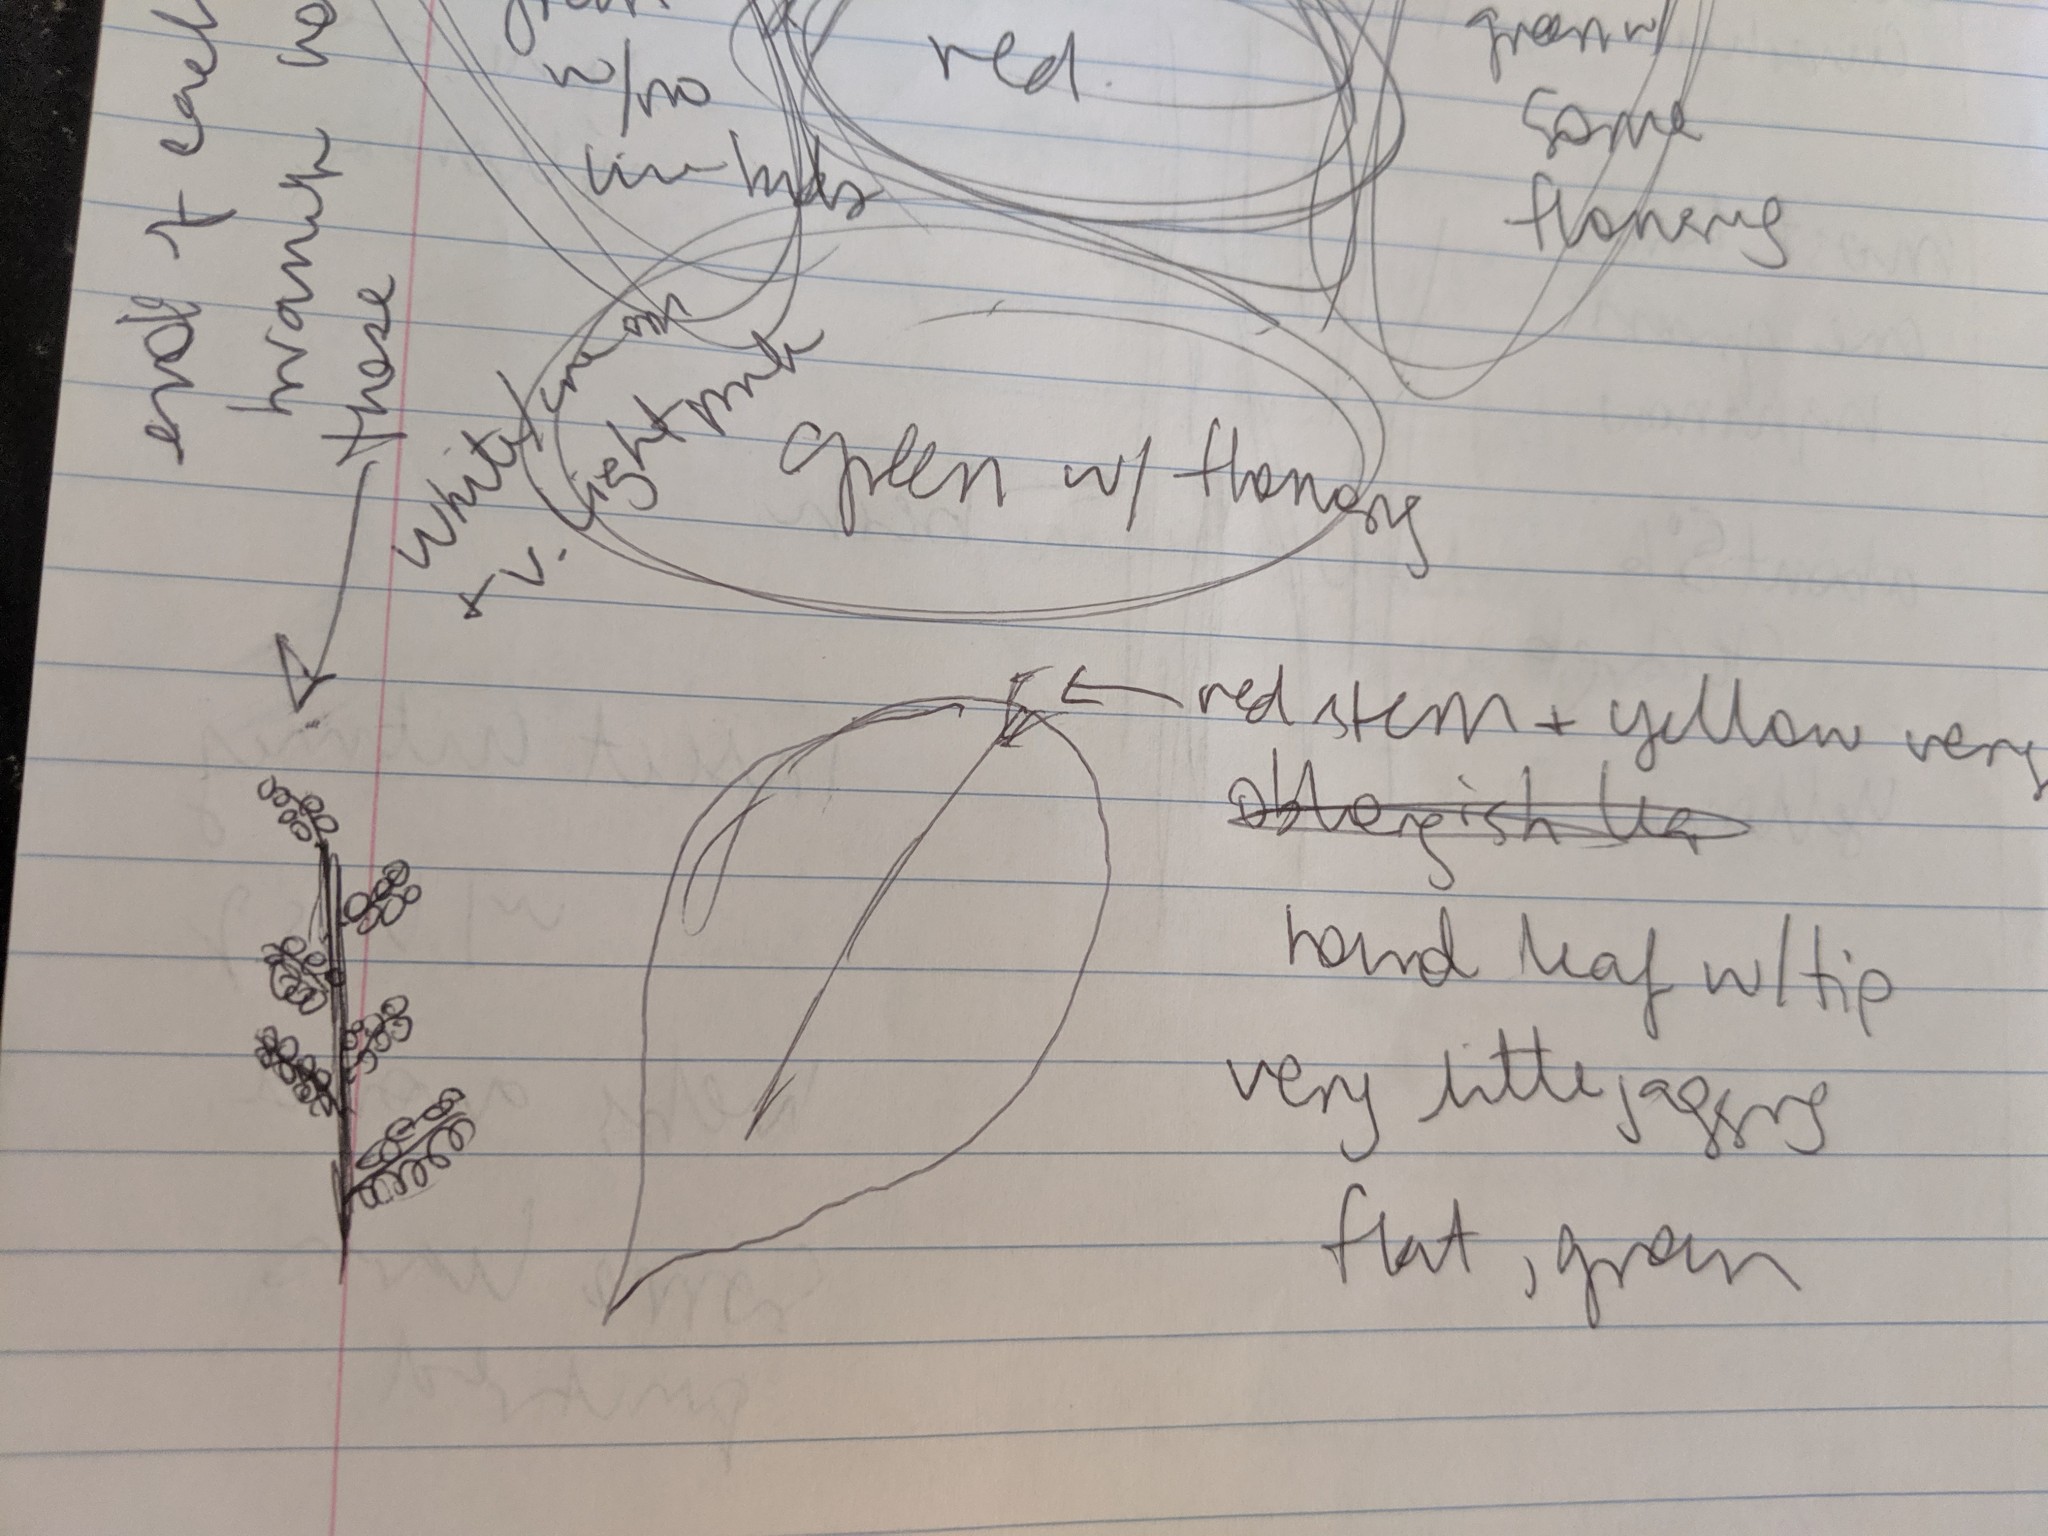 end of each
branch
these
w/no
live buds
red.
green w/
some
flowering
White/
+ v. light pink
green w/ flowering
red stem + yellow very
round leaf w/ tip
very little jagging
flat, green